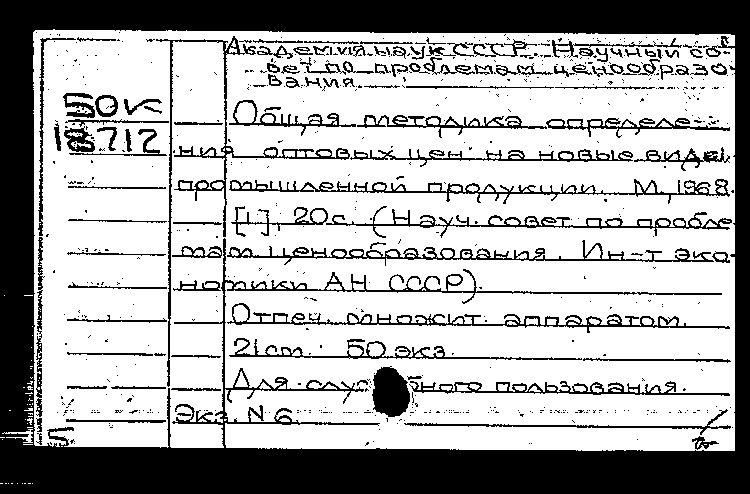 Академия наук СССР. Научный со-
вет по проблемам ценообразо-
вания.
50к
Общая методика определе-
18712
ния оптовых цен на новые виды
промышленной продукции. М., 1968.
[1], 20с. (Науч. совет по пробле-
мам ценообразования. Ин-т эко-
номики АН СССР).
Отпеч. множит. аппаратом.
21 см. 50 экз.
Для служебного пользования.
Экз. N 6.
5